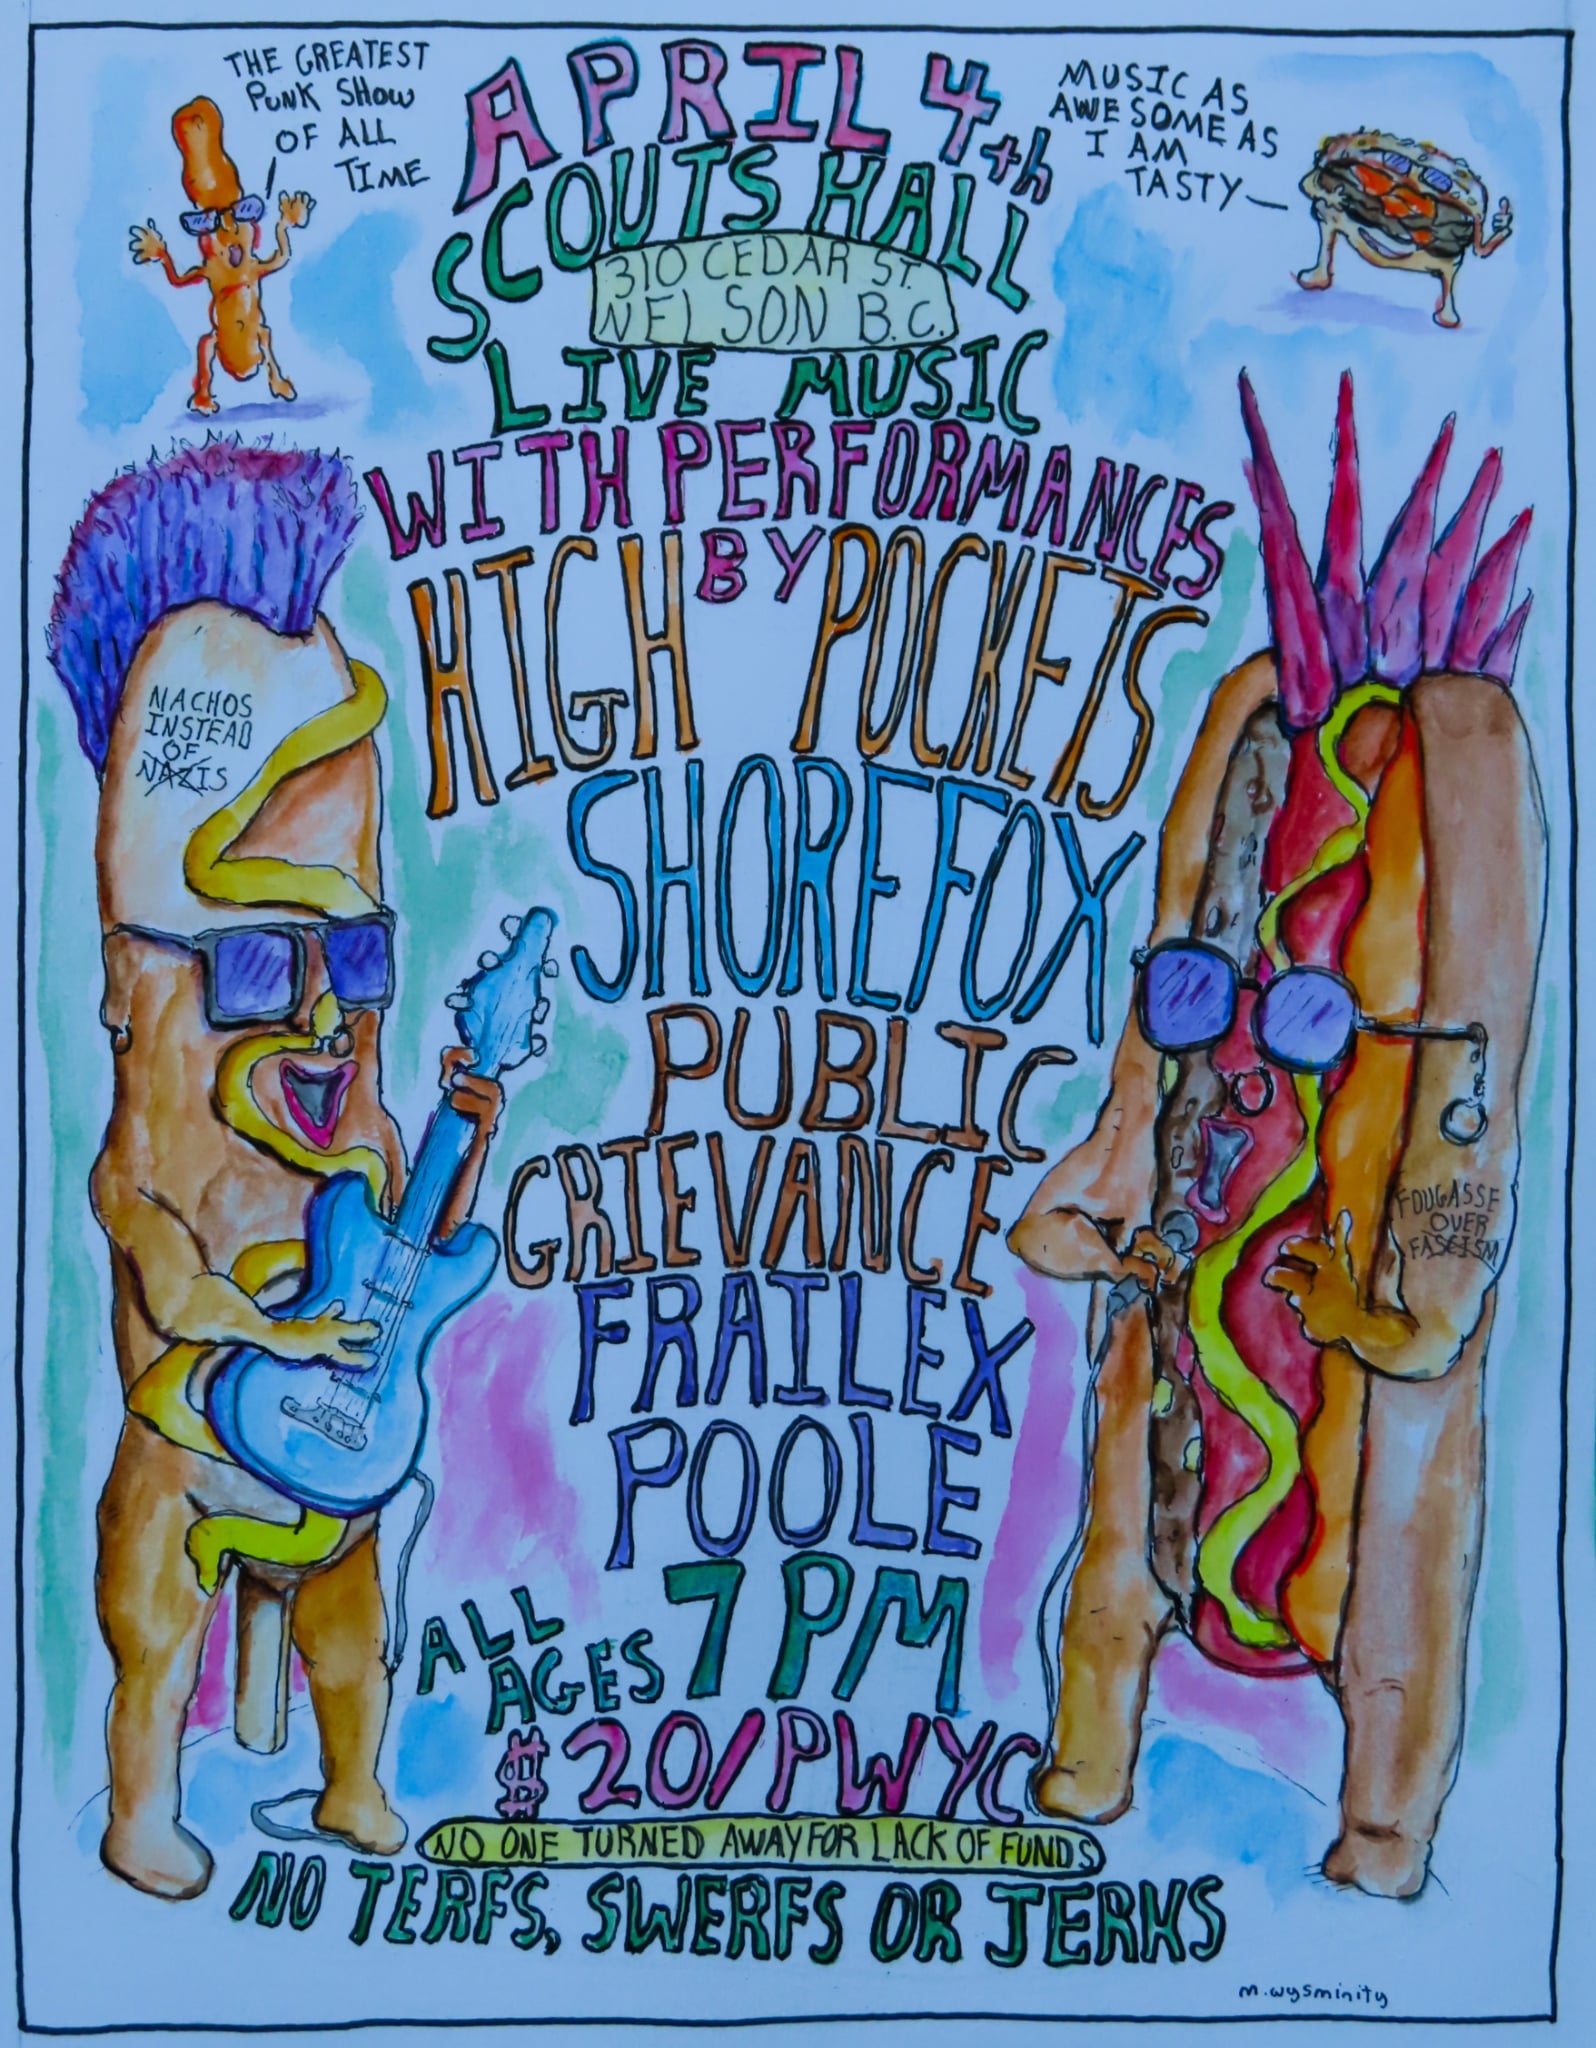 THE GREATEST
PUNK SHOW
OF ALL
TIME
APRIL 4th
MUSIC AS
AWESOME AS
I AM
TASTY
SCOUTS HALL
310 CEDAR ST.
NELSON B.C.
LIVE MUSIC
WITH PERFORMANCES
BY
HIGH POCKETS
NACHOS
INSTEAD
OF
NAZIS
SHOREFOX
PUBLIC
GRIEVANCE
FOUGASSE
OVER
FASCISM
FRAILEX
POOLE
ALL
AGES
7 PM
$20/PWYC
NO ONE TURNED AWAY FOR LACK OF FUNDS
NO TERFS, SWERFS OR JERKS
m.wysminity